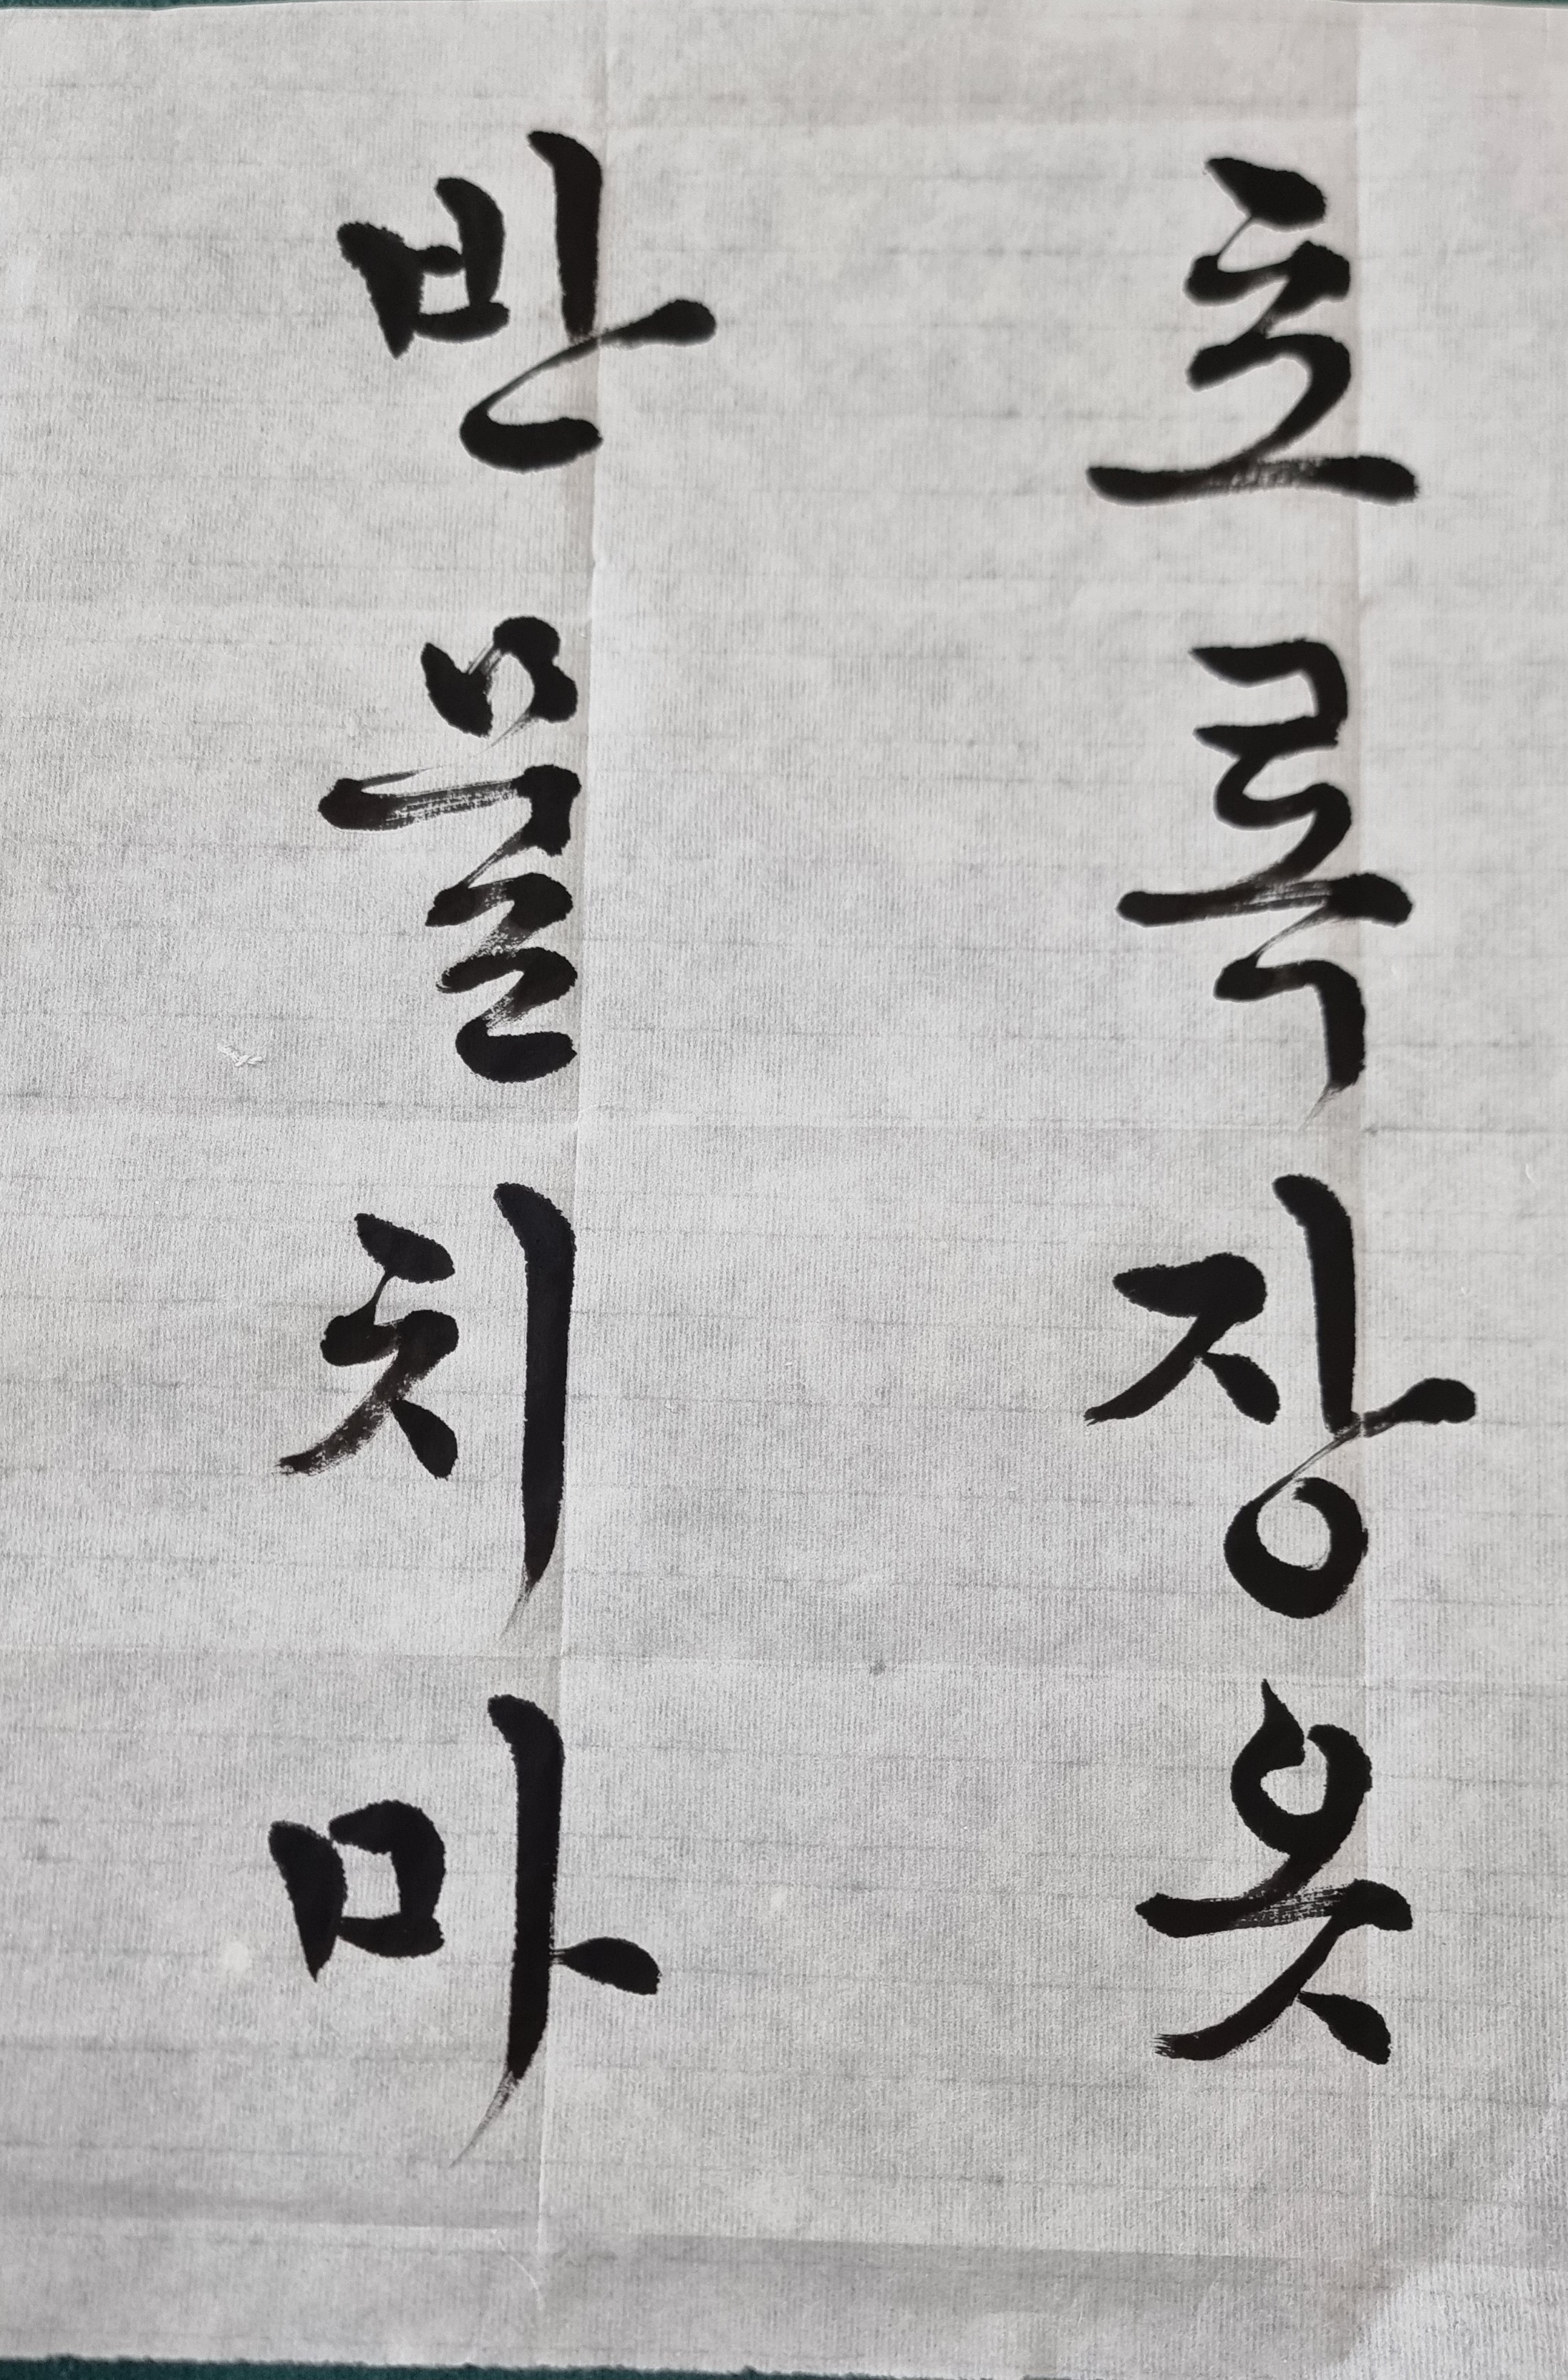 초록장옷
반물치마